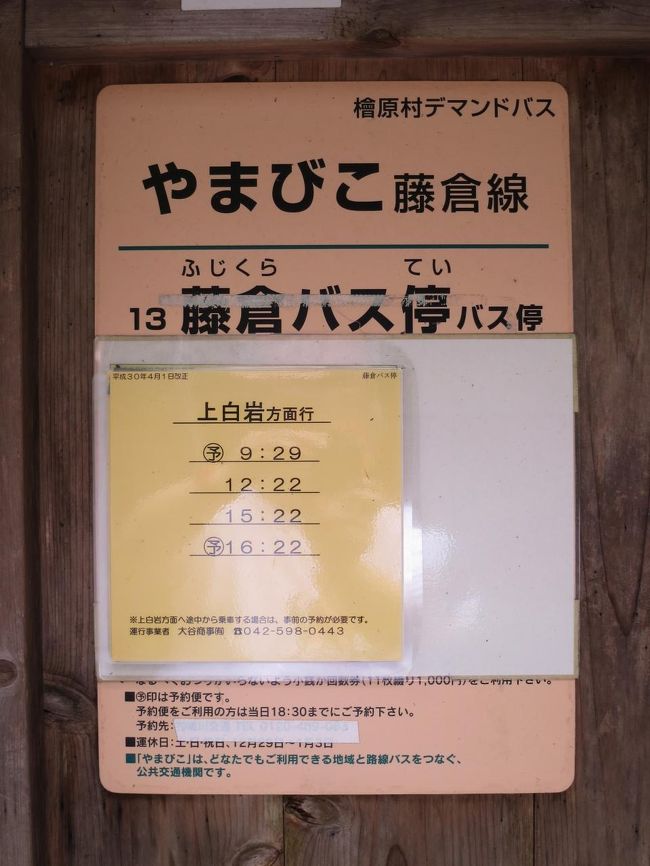 檜原村デマンドバス
やまびこ藤倉線
ふじくら てい
13 藤倉バス停バス停
平成30年4月1日改正 藤倉バス停
上白岩方面行
予 9:29
12:22
15:22
予16:22
※上白岩方面へ途中から乗車する場合は、事前の予約が必要です。
運行事業者 大谷商事㈲ ☎042-598-0443
なるべくおつりがいらないよう小銭か回数券(11枚綴り1,000円)をご利用下さい。
■予印は予約便です。
予約便をご利用の方は当日18:30までにご予約下さい。
予約先:
■運休日:土・日・祝日、12月29日~1月3日
■「やまびこ」は、どなたでもご利用できる地域と路線バスをつなぐ、
公共交通機関です。